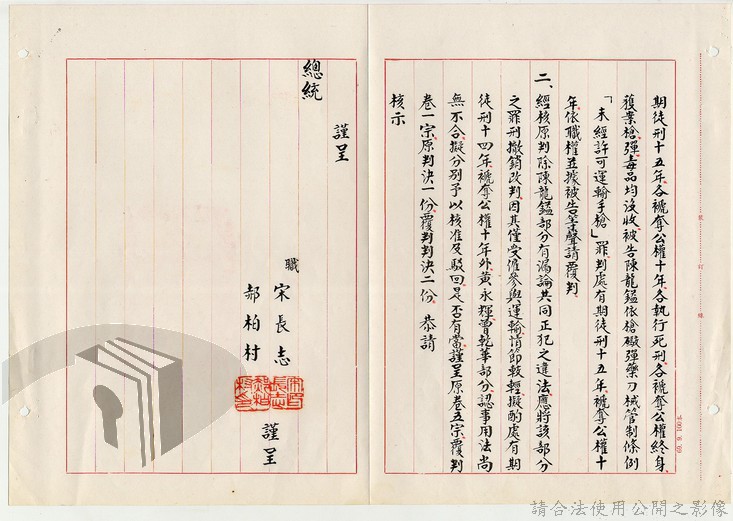 期徒刑十五年各褫奪公權十年各執行死刑各褫奪公權終身
獲案槍彈毒品均沒收被告陳龍鎰依槍礮彈藥刀械管制條例
「未經許可運輸手槍」罪判處有期徒刑十五年褫奪公權十
年依職權並據被告呈聲請覆判
二、經核原判除陳龍鎰部分有漏論共同正犯之違法應將該部分
之罪刑撤銷改判因其僅受僱參與運輸情節較輕擬酌處有期
徒刑十四年褫奪公權十年外黃永輝曾乾華部分認事用法尚
無不合擬分別予以核准及駁回是否有當謹呈原卷五宗覆判
卷一宗原判決一份覆判判決二份 恭請
核示
謹呈
總統
職 宋長志
郝柏村
謹呈
裝 訂 線
請合法使用公開之影像